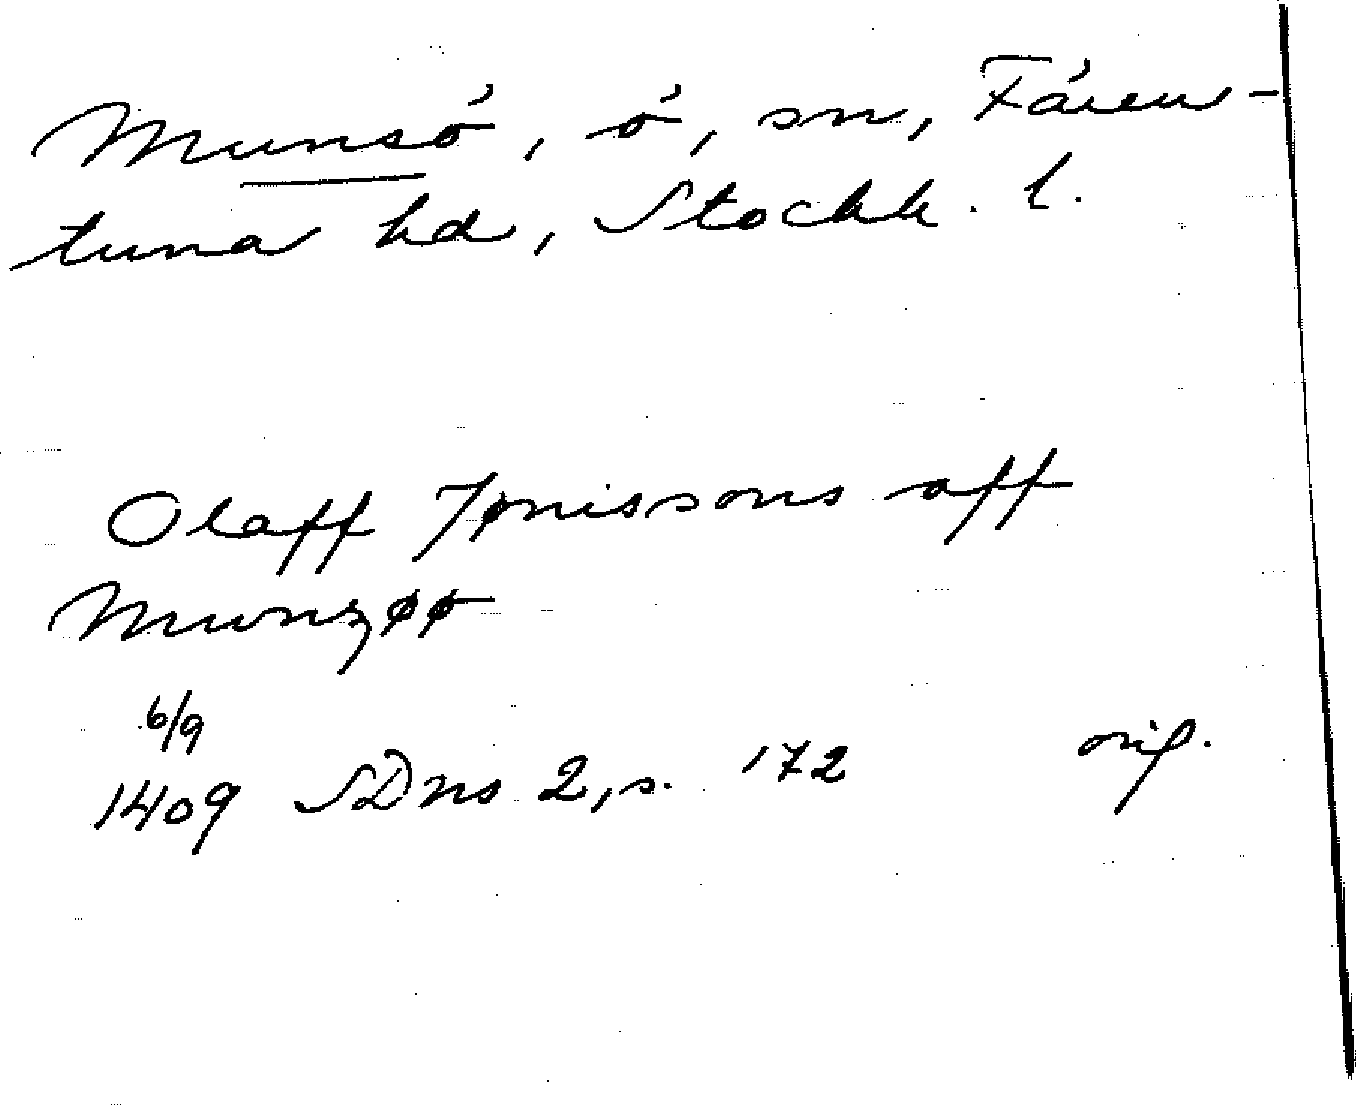 Munsö, ö, sn, Fären-
tuna hd, Stockh. l.
Olaff Jønissons aff
Munzøø
6/9
1409 SDns 2, s. 172 orig.